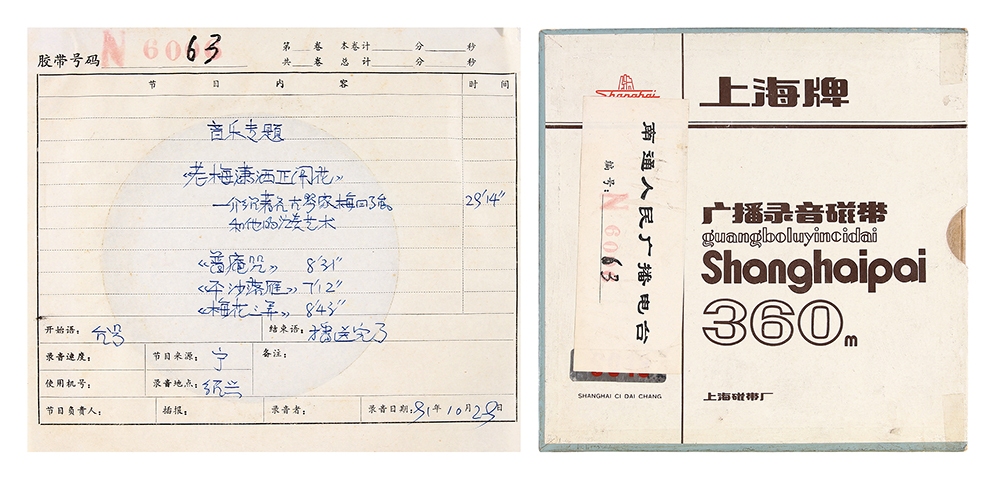 胶带号码 N 6063
第 卷 本卷计 分 秒
共 卷 总计 分 秒
节目内容 时间
音乐专题
《老梅潇洒正开花》
—介绍著名古琴家梅曰强 29′14″
和他的演奏艺术
《普庵咒》 8′31″
《平沙落雁》 7′12″
《梅花三弄》 8′43″
开始语: 结束语: 播送完了
录音速度: 节目来源: 宁 备注:
使用机号: 录音地点: 绍兴
节目负责人: 插报: 录音者: 录音日期: 91年10月29日
Shanghai
上海牌
南通人民广播电台
编号: N 6063
广播录音磁带
guangboluyincidai
Shanghaipai
360m
SHANGHAI CI DAI CHANG
上海磁带厂